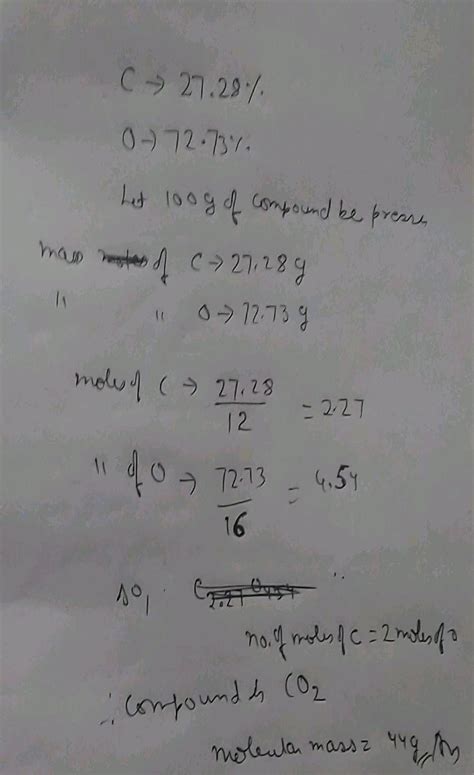 C → 27.28%
O → 72.73%
Let 100g of compound be presen
mass of C → 27.28 g
" " O → 72.73 g
moles of C → 27.28 / 12 = 2.27
" of O → 72.73 / 16 = 4.54
so,
no. of moles of C = 2 moles of O
∴ Compound is CO2
molecular mass = 44g